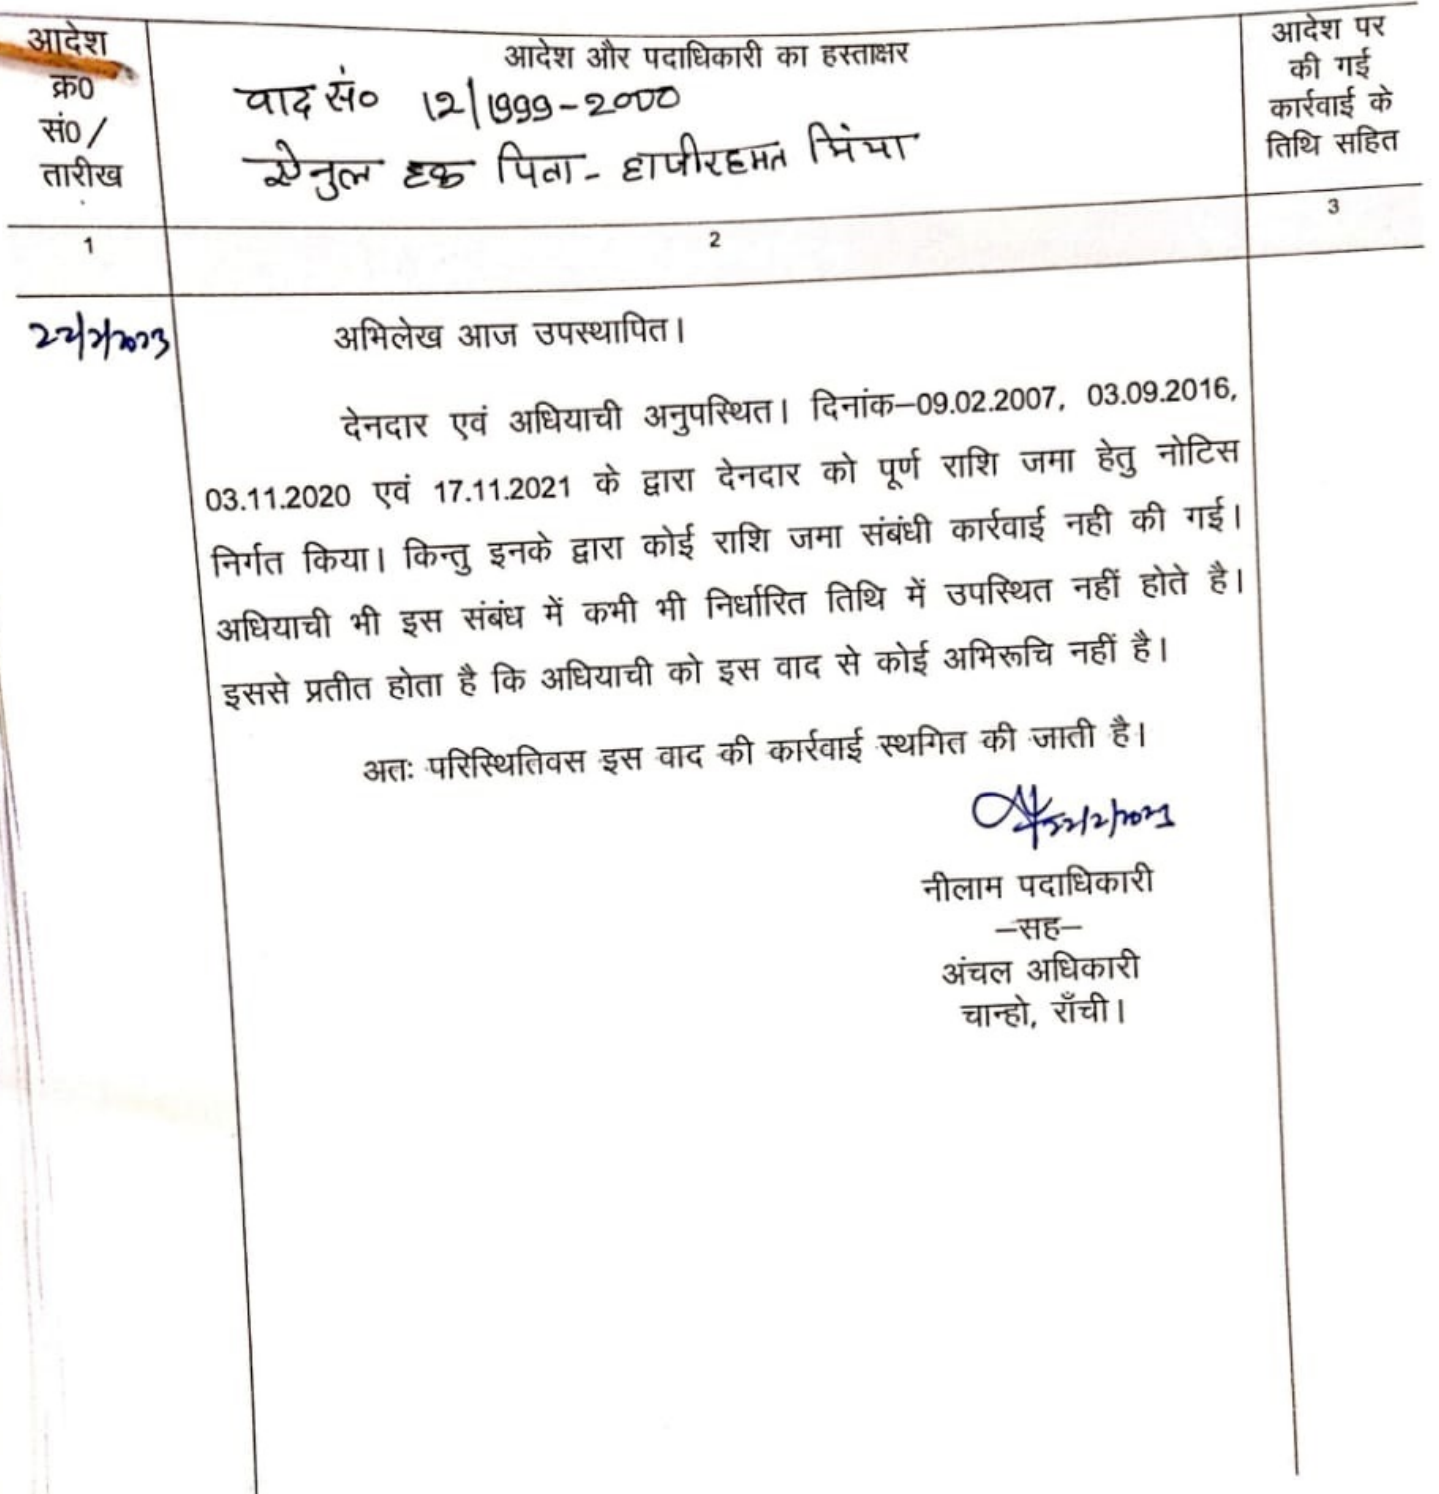 आदेश
क्र0
सं0 /
तारीख
आदेश और पदाधिकारी का हस्ताक्षर
वाद सं० 12/1999-2000
ऐनुल हक पिता - हाजीरहमत मिंया
आदेश पर
की गई
कार्रवाई के
तिथि सहित
1
2
3
22/2/2023
अभिलेख आज उपस्थापित।
देनदार एवं अधियाची अनुपस्थित। दिनांक–09.02.2007, 03.09.2016,
03.11.2020 एवं 17.11.2021 के द्वारा देनदार को पूर्ण राशि जमा हेतु नोटिस
निर्गत किया। किन्तु इनके द्वारा कोई राशि जमा संबंधी कार्रवाई नही की गई।
अधियाची भी इस संबंध में कभी भी निर्धारित तिथि में उपस्थित नहीं होते है।
इससे प्रतीत होता है कि अधियाची को इस वाद से कोई अभिरूचि नहीं है।
अतः परिस्थितिवस इस वाद की कार्रवाई स्थगित की जाती है।
22/2/2023
नीलाम पदाधिकारी
–सह–
अंचल अधिकारी
चान्हो, राँची।